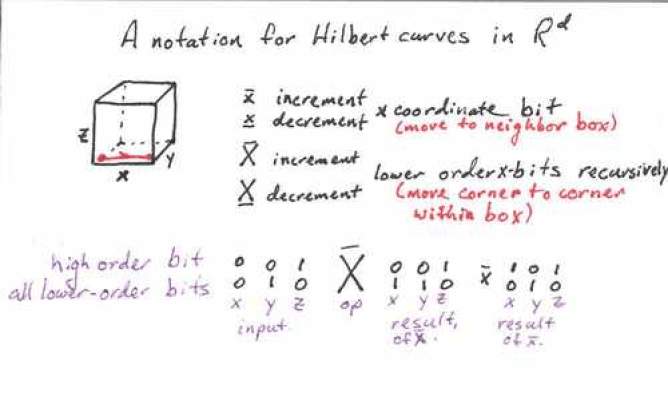 A notation for Hilbert curves in R^d
x̄ increment x coordinate bit
x̲ decrement (move to neighbor box)
X̄ increment lower order x-bits recursively
X̲ decrement (move corner to corner within box)
Z
Y
X
high order bit 0 0 1 X̄ 0 0 1 x̄ 1 0 1
all lower-order bits 0 1 0 1 1 0 0 1 0
x y z op x y z x y z
input result of X̄. result of x̄.